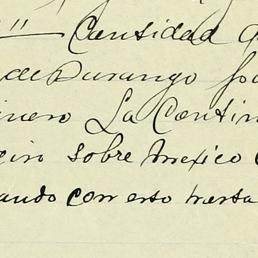 " Cantidad q
de Durango por
inero La Contin
giro sobre Mexico
ando con esto hasta